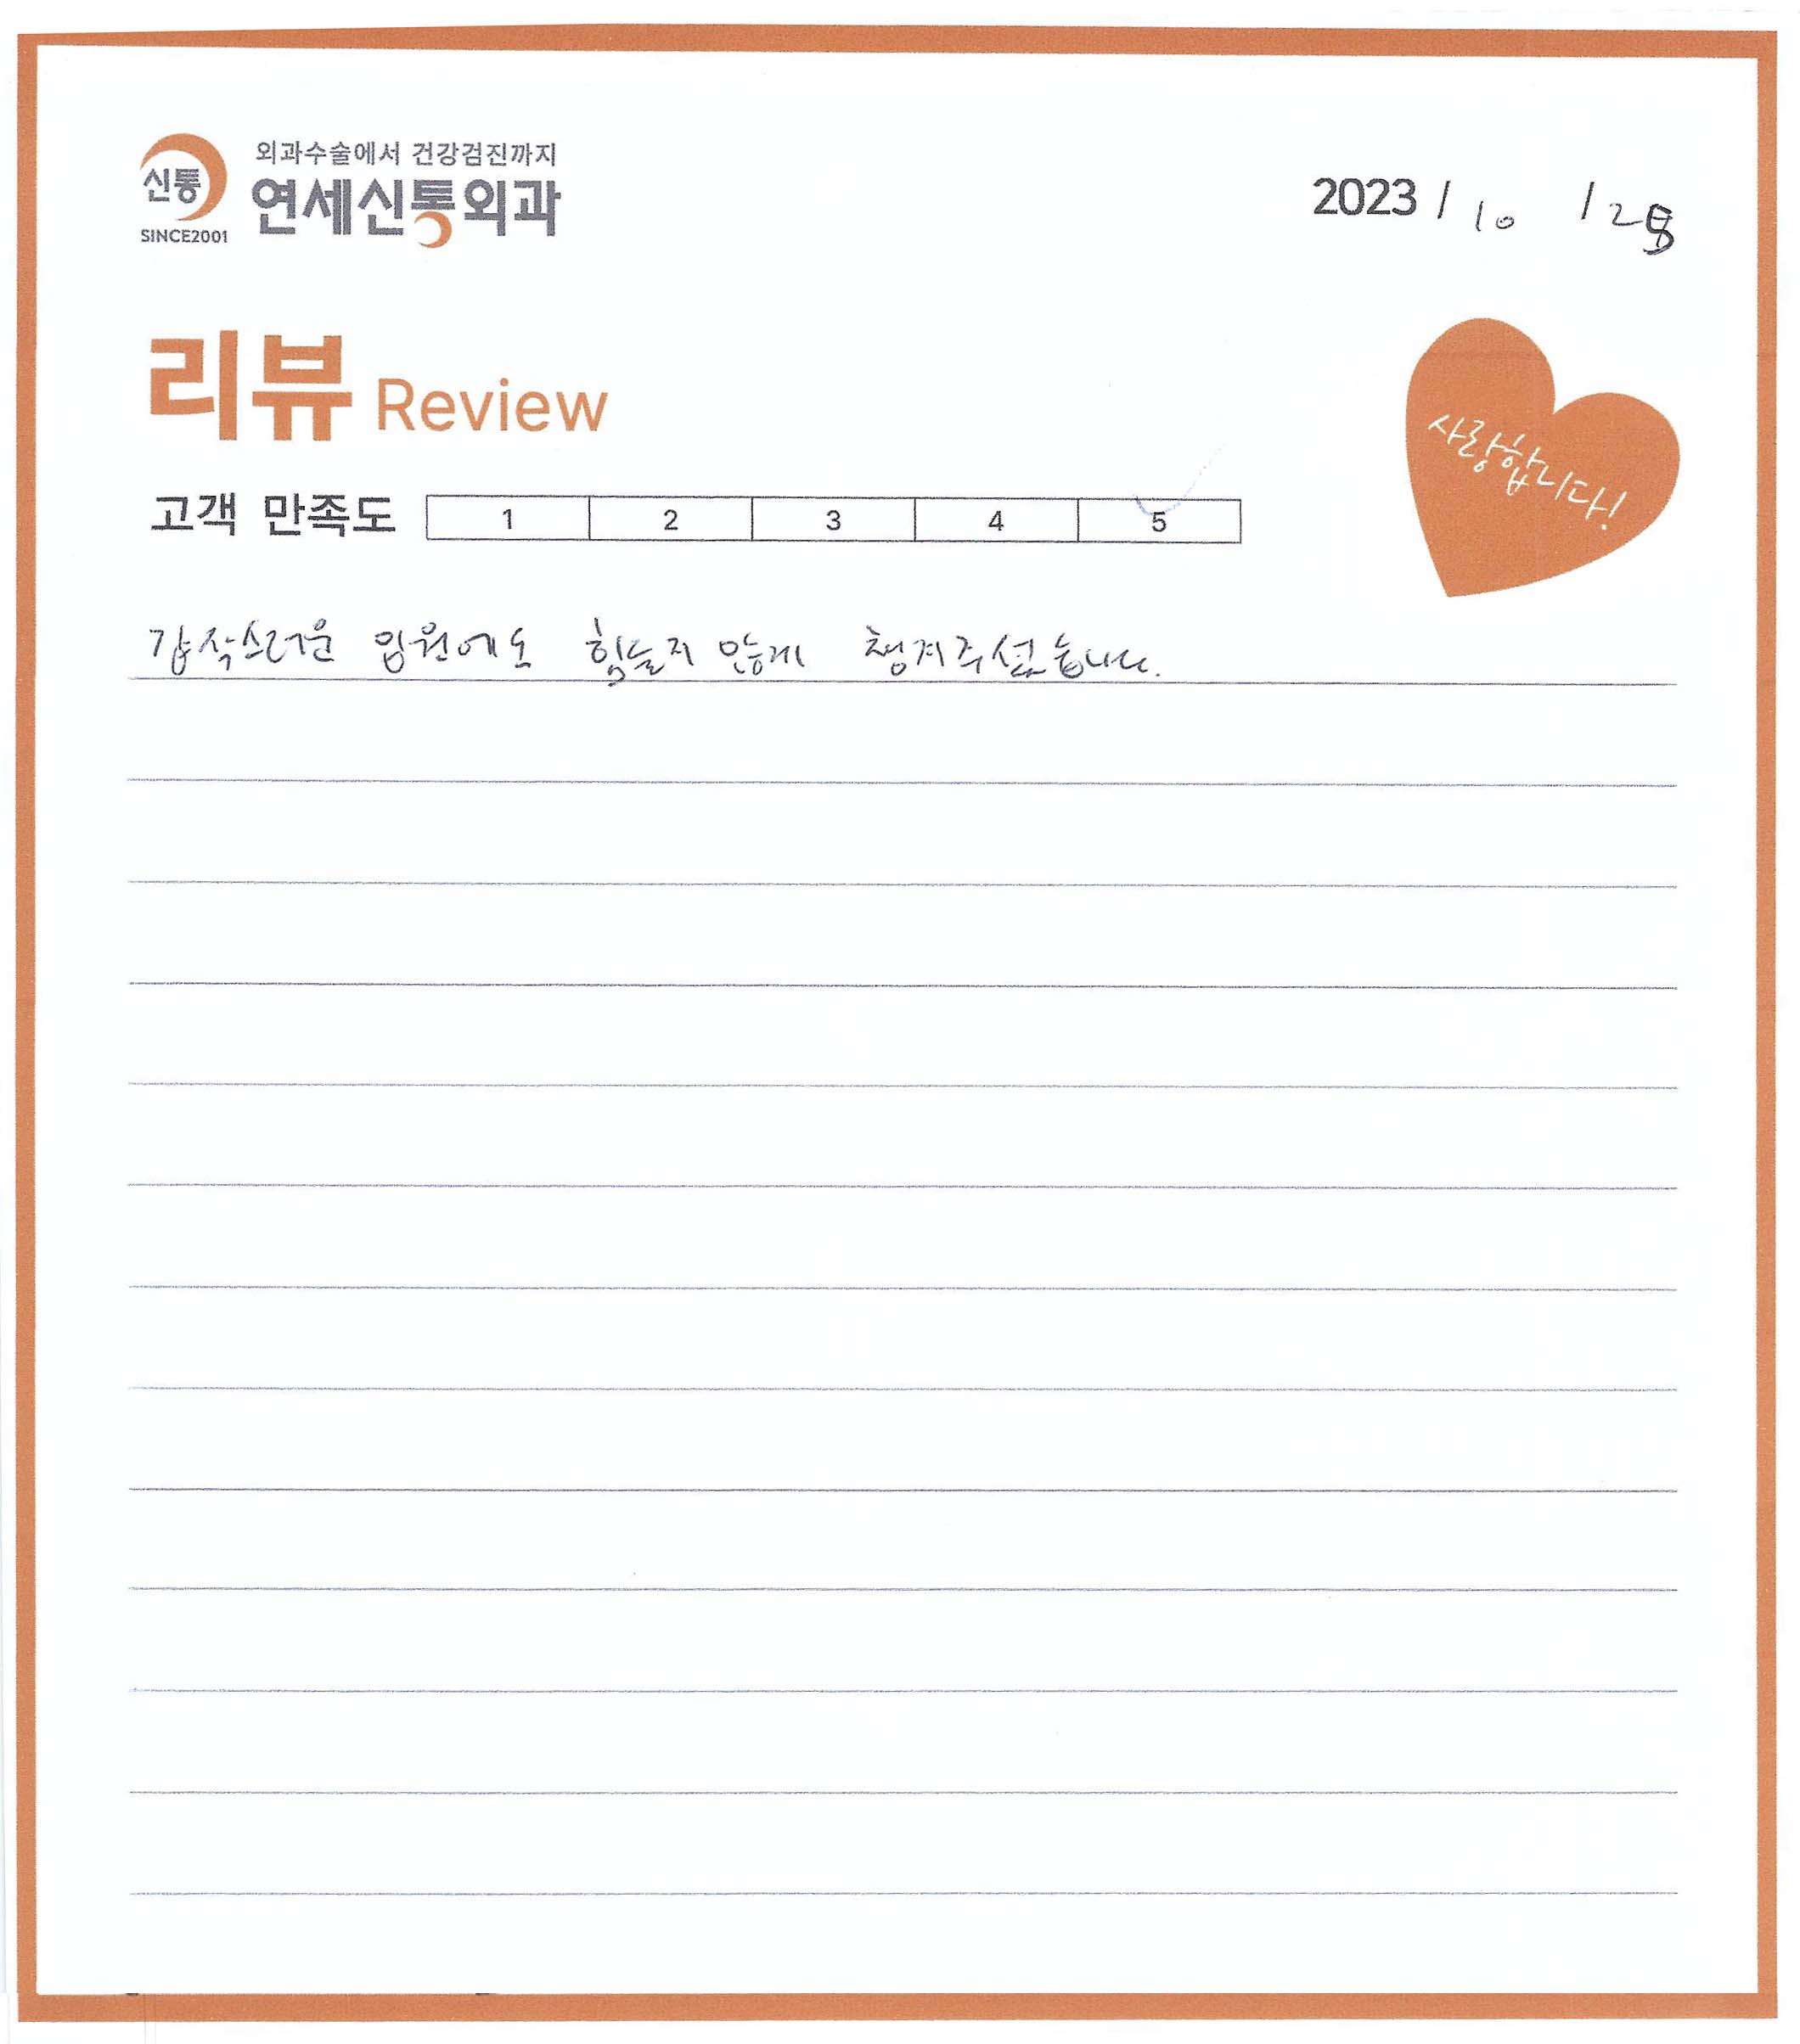 신통
SINCE2001
외과수술에서 건강검진까지
연세신통외과
2023 / 10 / 2
리뷰 Review
사랑합니다!
고객 만족도 1 2 3 4 5
갑작스러운 입원에도 힘들지 않게 챙겨주셨습니다.